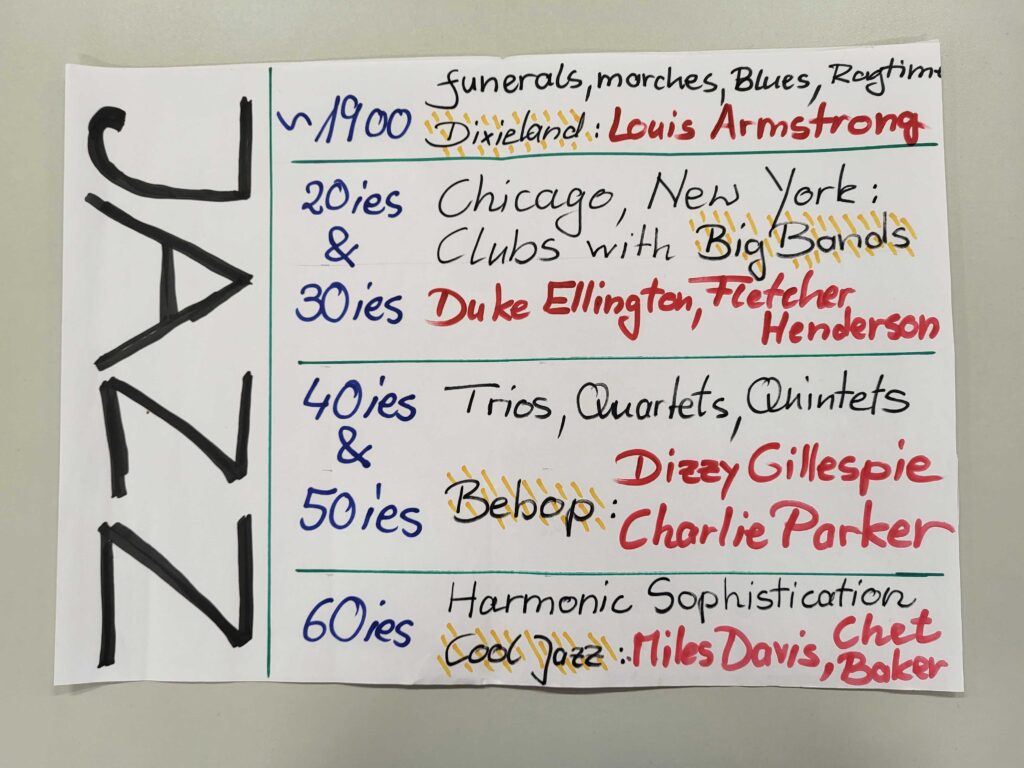 JAZZ
~1900
funerals, marches, Blues, Ragtime
Dixieland: Louis Armstrong
20ies
&
30ies
Chicago, New York:
Clubs with Big Bands
Duke Ellington, Fletcher
Henderson
40ies
&
50ies
Trios, Quartets, Quintets
Bebop: Dizzy Gillespie
Charlie Parker
60ies
Harmonic Sophistication
Cool Jazz: Miles Davis, Chet
Baker